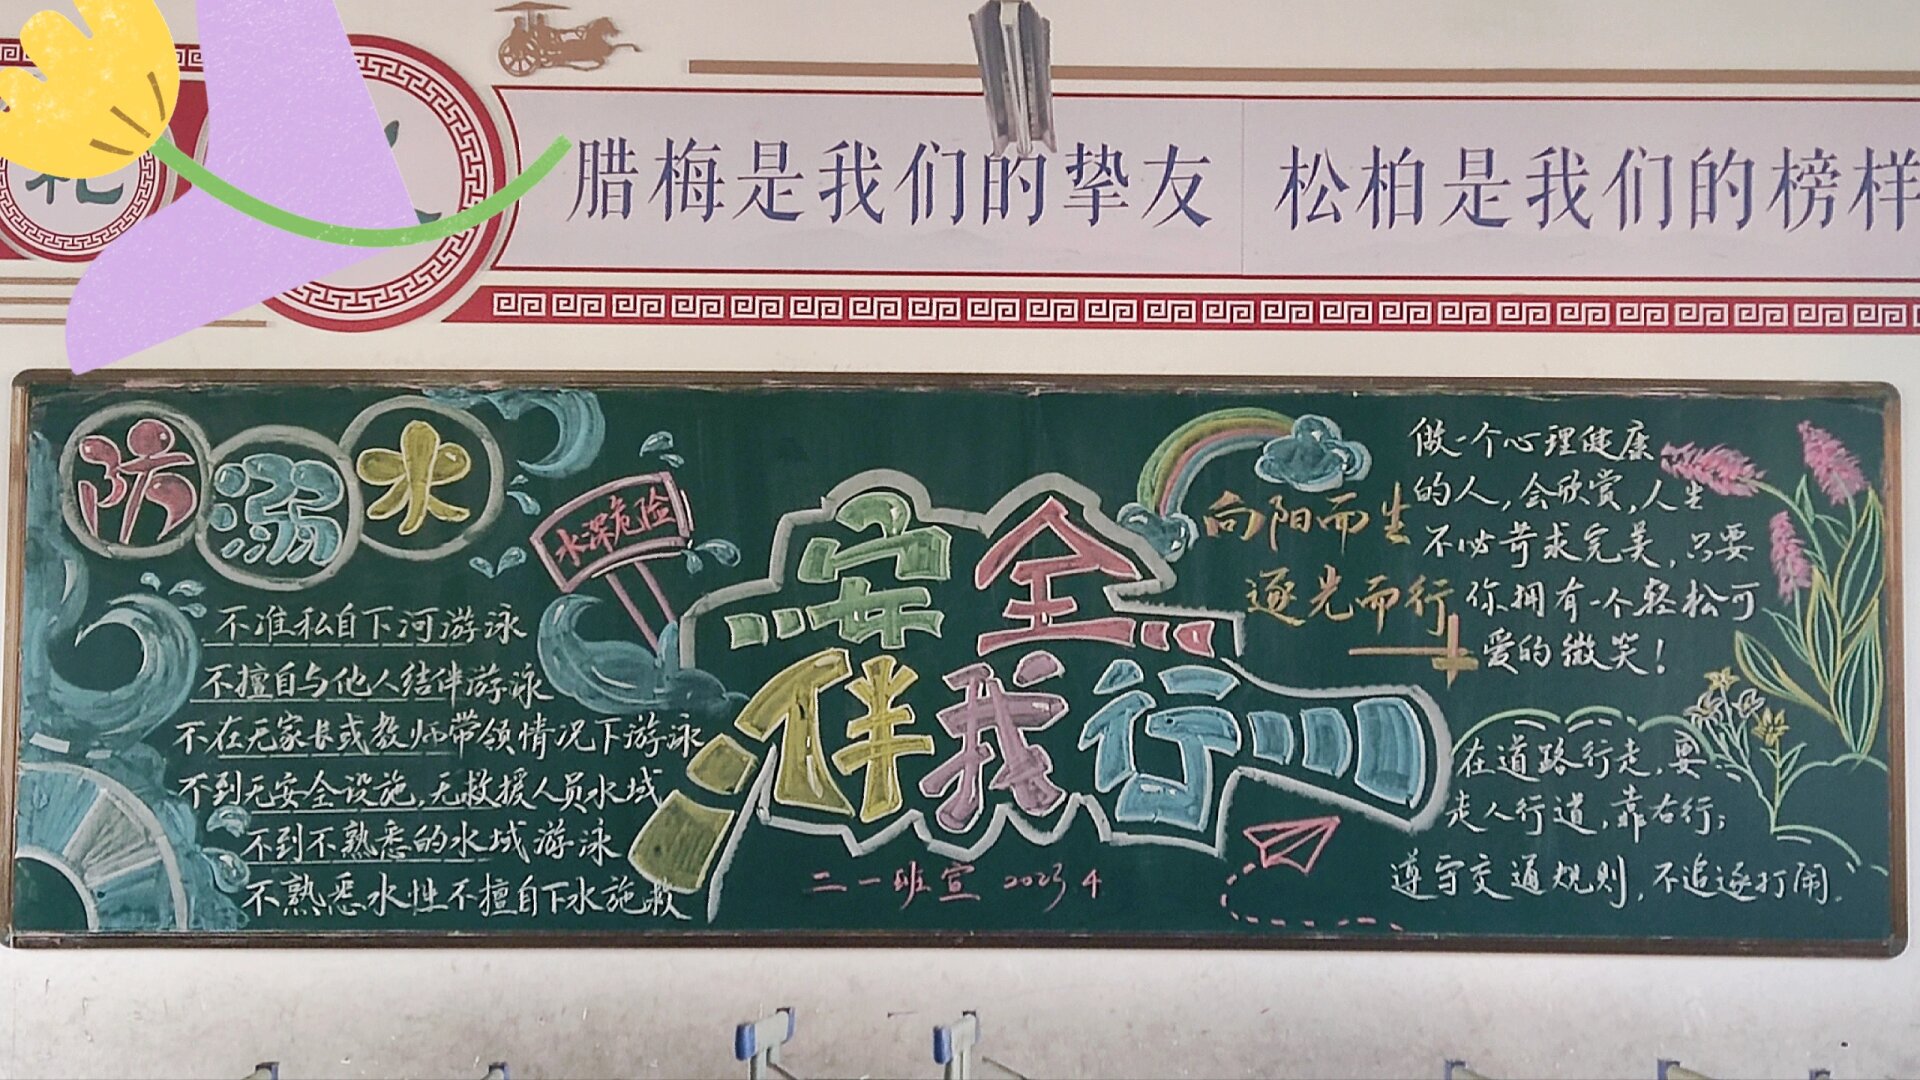 礼
腊梅是我们的挚友 松柏是我们的榜样
防溺水
水深危险
不准私自下河游泳
不擅自与他人结伴游泳
不在无家长或教师带领情况下游泳
不到无安全设施,无救援人员水域
不到不熟悉的水域游泳
不熟悉水性不擅自下水施救
安全
伴我行
二一班宣 2023 4
向阳而生
逐光而行
做一个心理健康
的人,会欣赏,人生
不必苛求完美,只要
你拥有一个轻松可
爱的微笑!
在道路行走,要
走人行道,靠右行;
遵守交通规则,不追逐打闹.